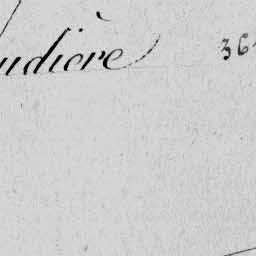 udière 36